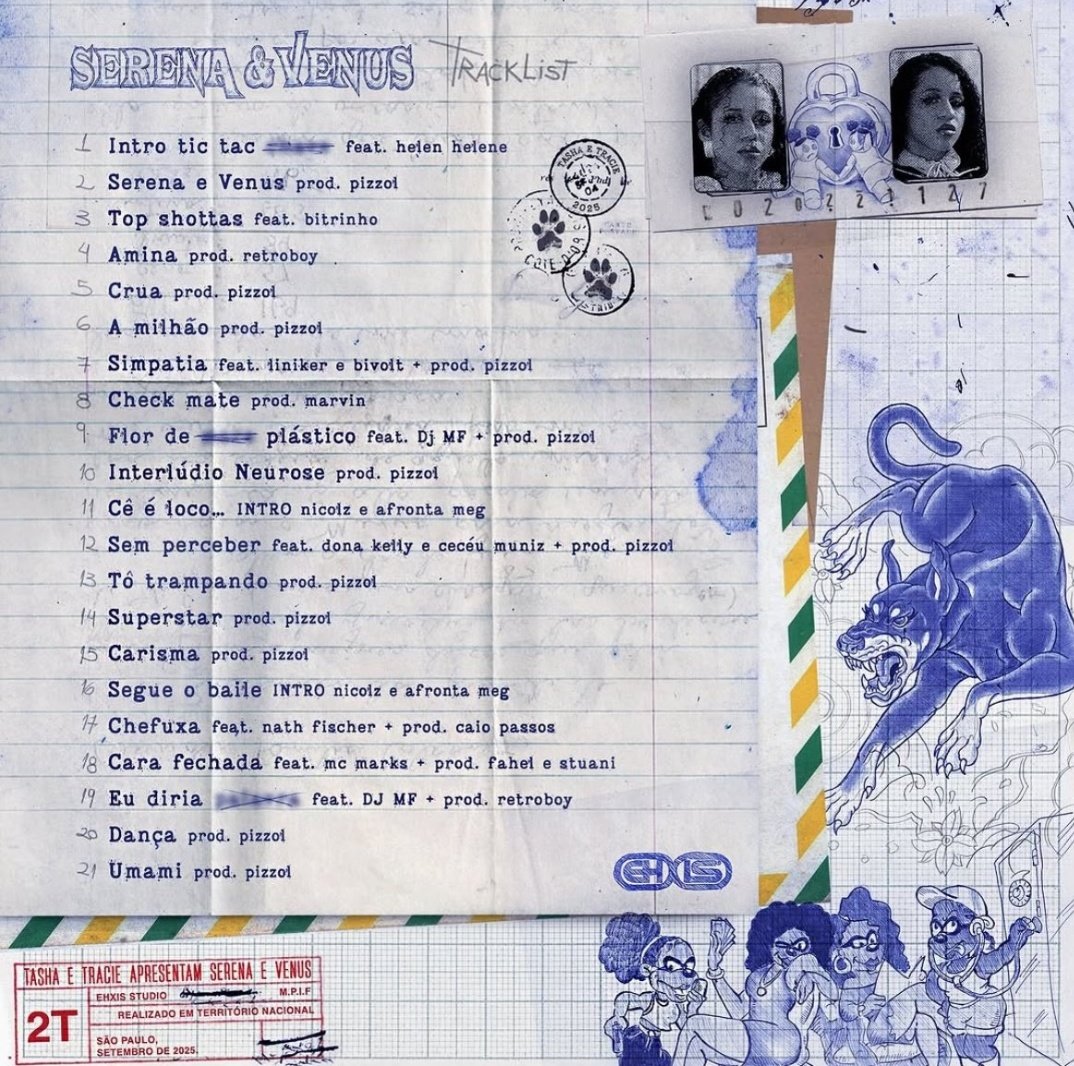 SERENA & VENUS TRACKLIST
1 Intro tic tac feat. helen helene
2 Serena e Venus prod. pizzol
3 Top shottas feat. bitrinho
4 Amina prod. retroboy
5 Crua prod. pizzol
6 A milhão prod. pizzol
7 Simpatia feat. liniker e bivolt + prod. pizzol
8 Check mate prod. marvin
9 Flor de plástico feat. Dj MF + prod. pizzol
10 Interlúdio Neurose prod. pizzol
11 Cê é loco... INTRO nicolz e afronta meg
12 Sem perceber feat. dona kelly e cecéu muniz + prod. pizzol
13 Tô trampando prod. pizzol
14 Superstar prod. pizzol
15 Carisma prod. pizzol
16 Segue o baile INTRO nicolz e afronta meg
17 Chefuxa feat. nath fischer + prod. caio passos
18 Cara fechada feat. mc marks + prod. fahel e stuani
19 Eu diria feat. DJ MF + prod. retroboy
20 Dança prod. pizzol
21 Umami prod. pizzol
TASHA E TRACIE
04
2025
EHXIS
TASHA E TRACIE APRESENTAM SERENA E VENUS
2T
EHXIS STUDIO M.P.I.F
REALIZADO EM TERRITÓRIO NACIONAL
SÃO PAULO,
SETEMBRO DE 2025.